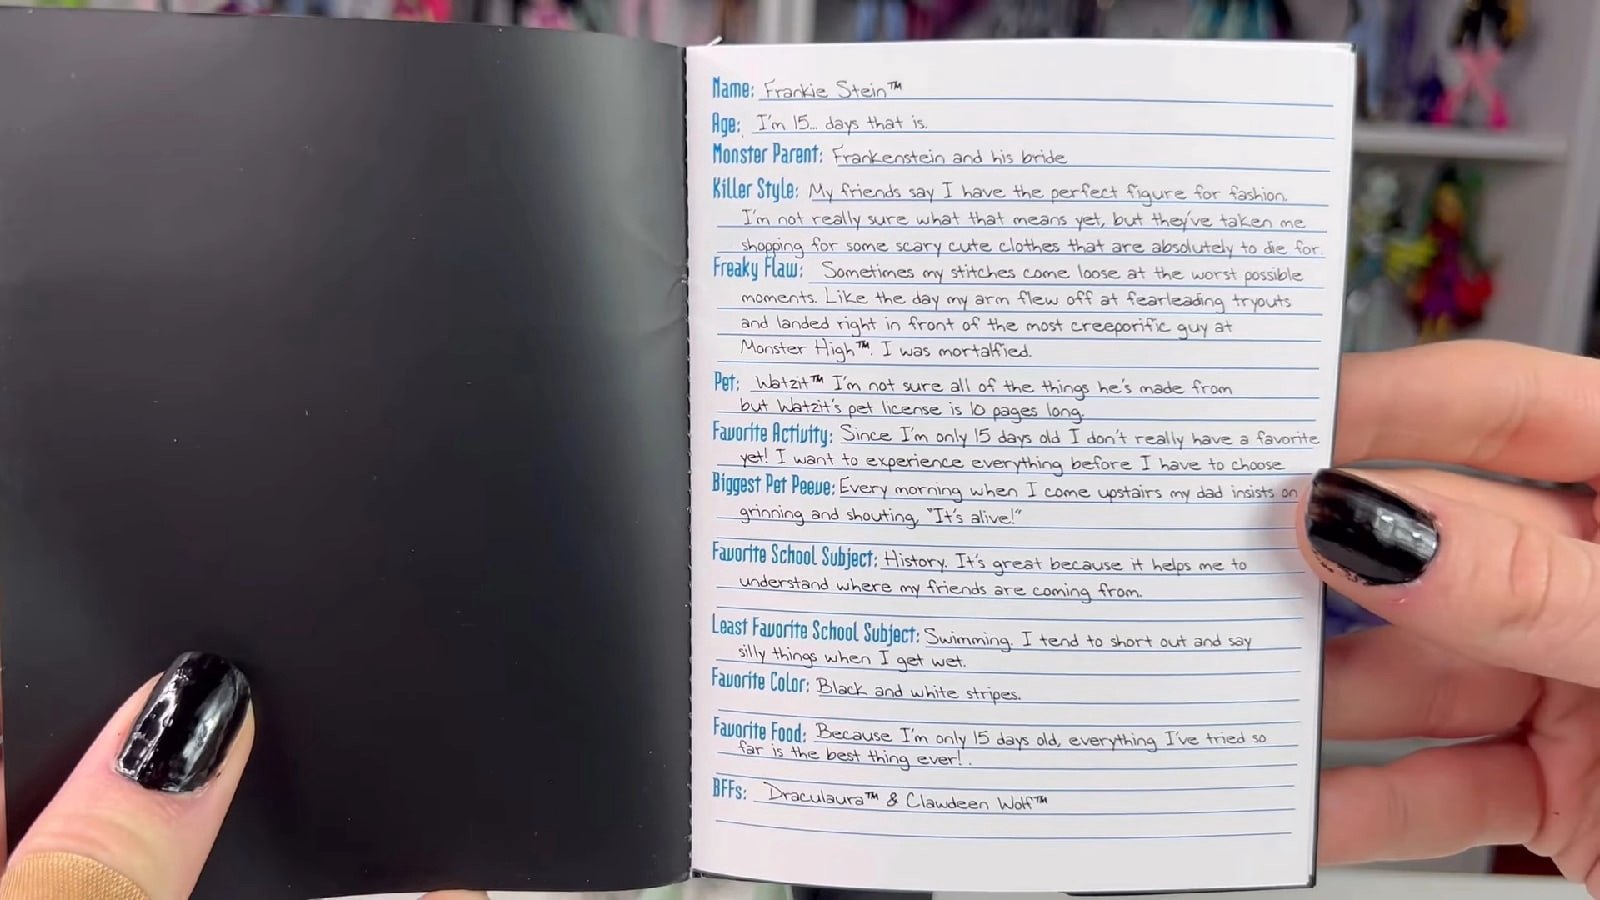 Name: Frankie Stein™
Age: I'm 15... days that is.
Monster Parent: Frankenstein and his bride
Killer Style: My friends say I have the perfect figure for fashion.
I'm not really sure what that means yet, but they've taken me
shopping for some scary cute clothes that are absolutely to die for.
Freaky Flaw: Sometimes my stitches come loose at the worst possible
moments. Like the day my arm flew off at fearleading tryouts
and landed right in front of the most creeporific guy at
Monster High™. I was mortalfied.
Pet: Watzit™ I'm not sure all of the things he's made from
but Watzit's pet license is 10 pages long.
Favorite Activity: Since I'm only 15 days old I don't really have a favorite
yet! I want to experience everything before I have to choose
Biggest Pet Peeve: Every morning when I come upstairs my dad insists on
grinning and shouting, "It's alive!"
Favorite School Subject: History. It's great because it helps me to
understand where my friends are coming from.
Least Favorite School Subject: Swimming. I tend to short out and say
silly things when I get wet.
Favorite Color: Black and white stripes.
Favorite Food: Because I'm only 15 days old, everything I've tried so
far is the best thing ever!.
BFFs: Draculaura™ & Clawdeen Wolf™